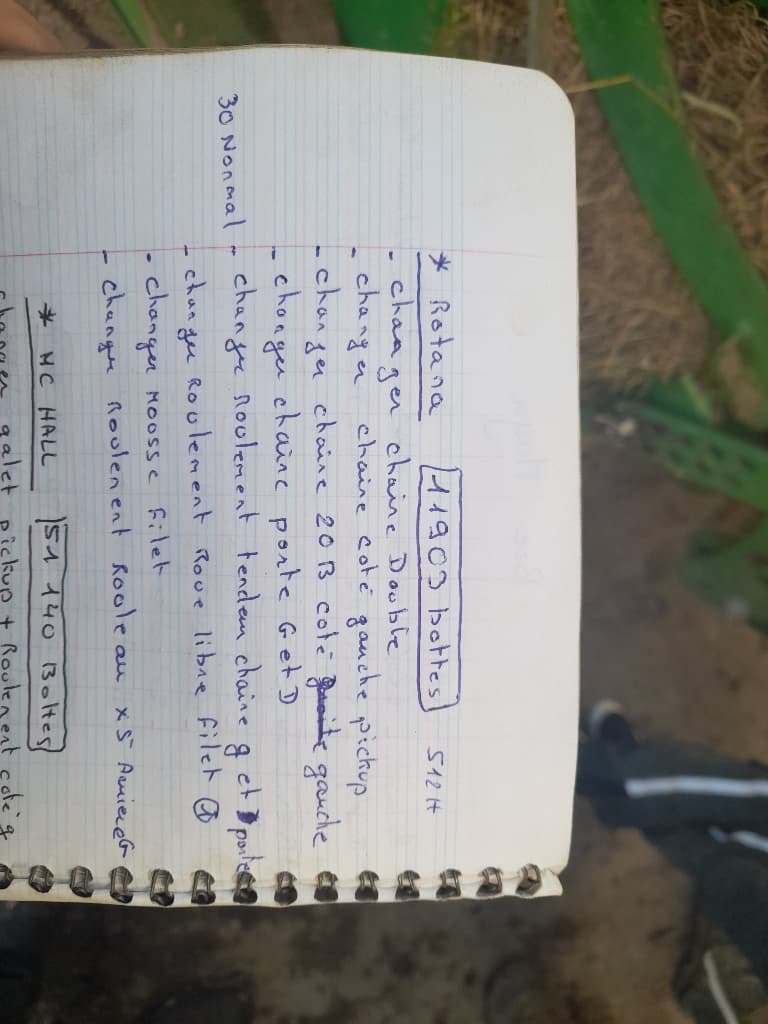 * Rotana 11903 bottes 512H
- changer chaine Double
- changer chaine coté gauche pickup
- changer chaine 20B coté gauche
- changer chaine porte G et D
30 Normal - changer Roulement tendeur chaine g et D porte
- changer Roulement Roue libre filet 1
- changer Moosse filet
- changer Roulement Rouleau x5
* MC HALL 51 140 Bottes
changer galet pickup + Roulement coté g